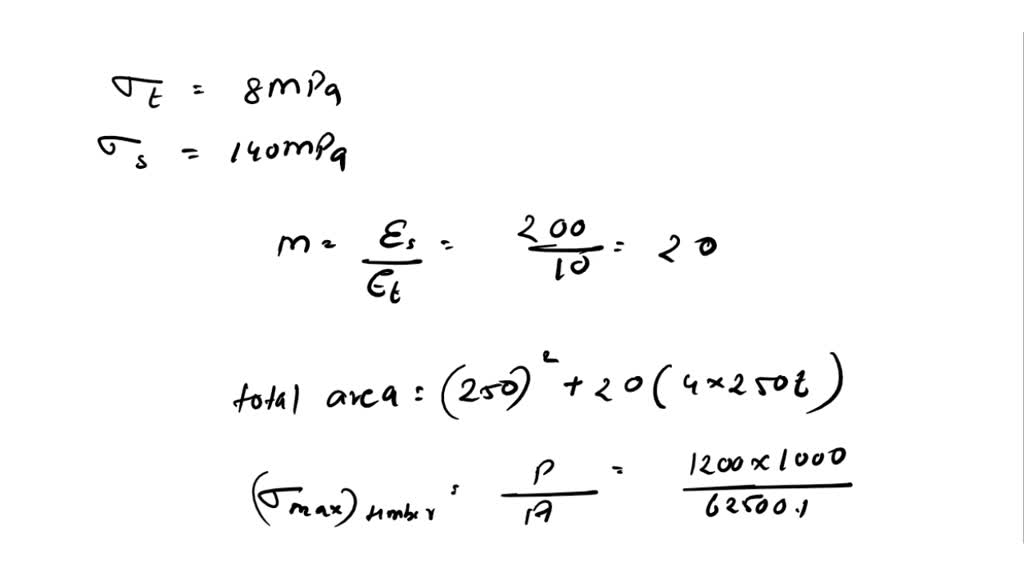 σt = 8mPa
σs = 140mPa
m = Es/Et = 200/10 = 20
total area = (250)² + 20(4×250t)
(σmax)timber = P/A = 1200×1000/62500.1